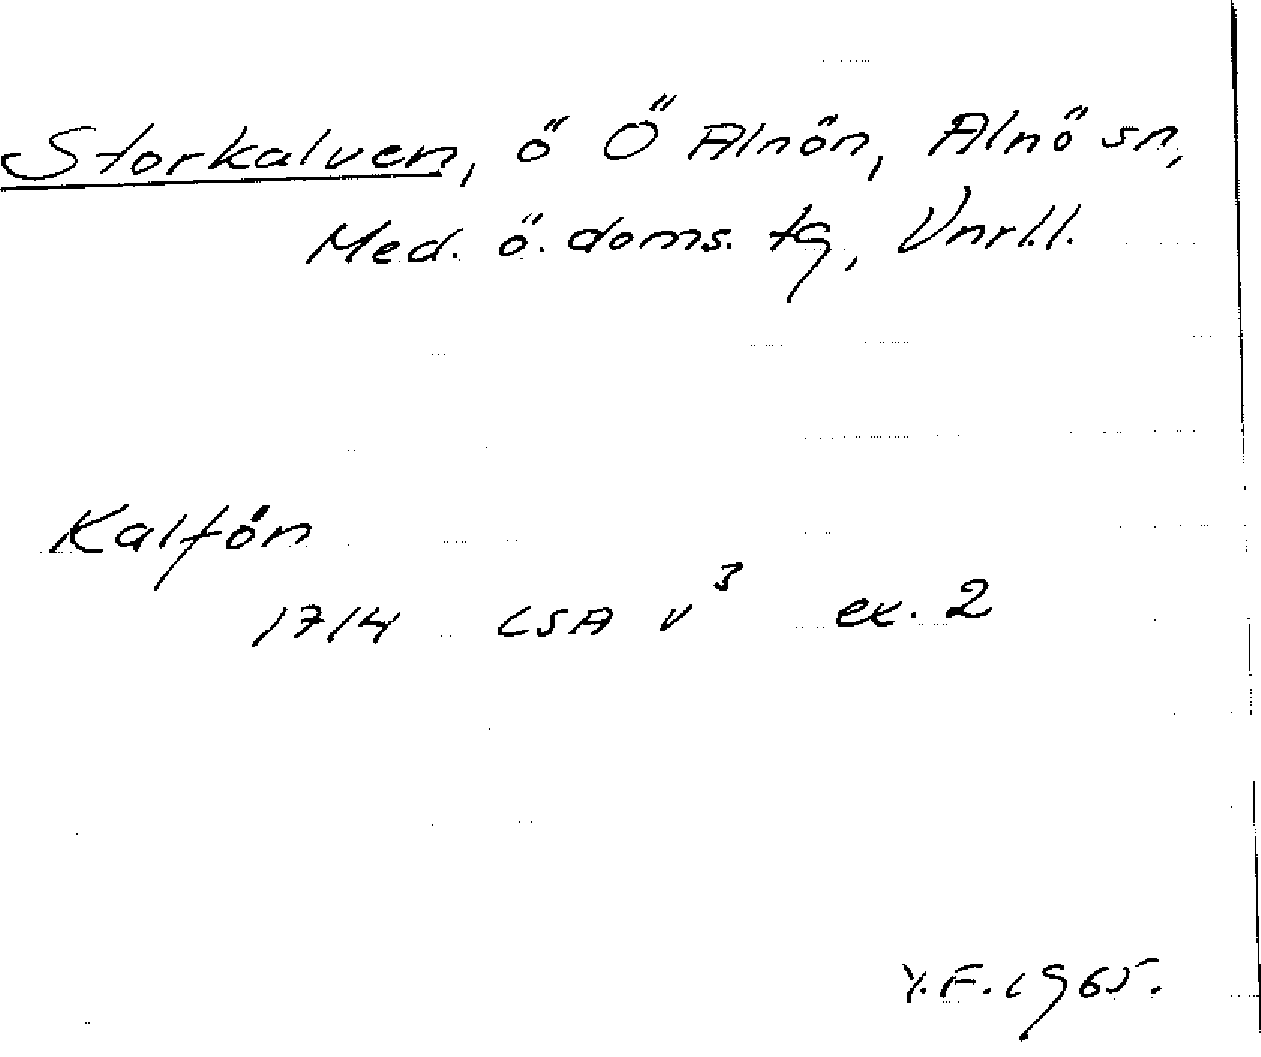 Storkalven, ö Ö Alnön, Alnö sn,
Med. ö. doms. tg, Vnrl.l.
Kalfön
1714 LSA v³ ex. 2
Y.F. 1965.